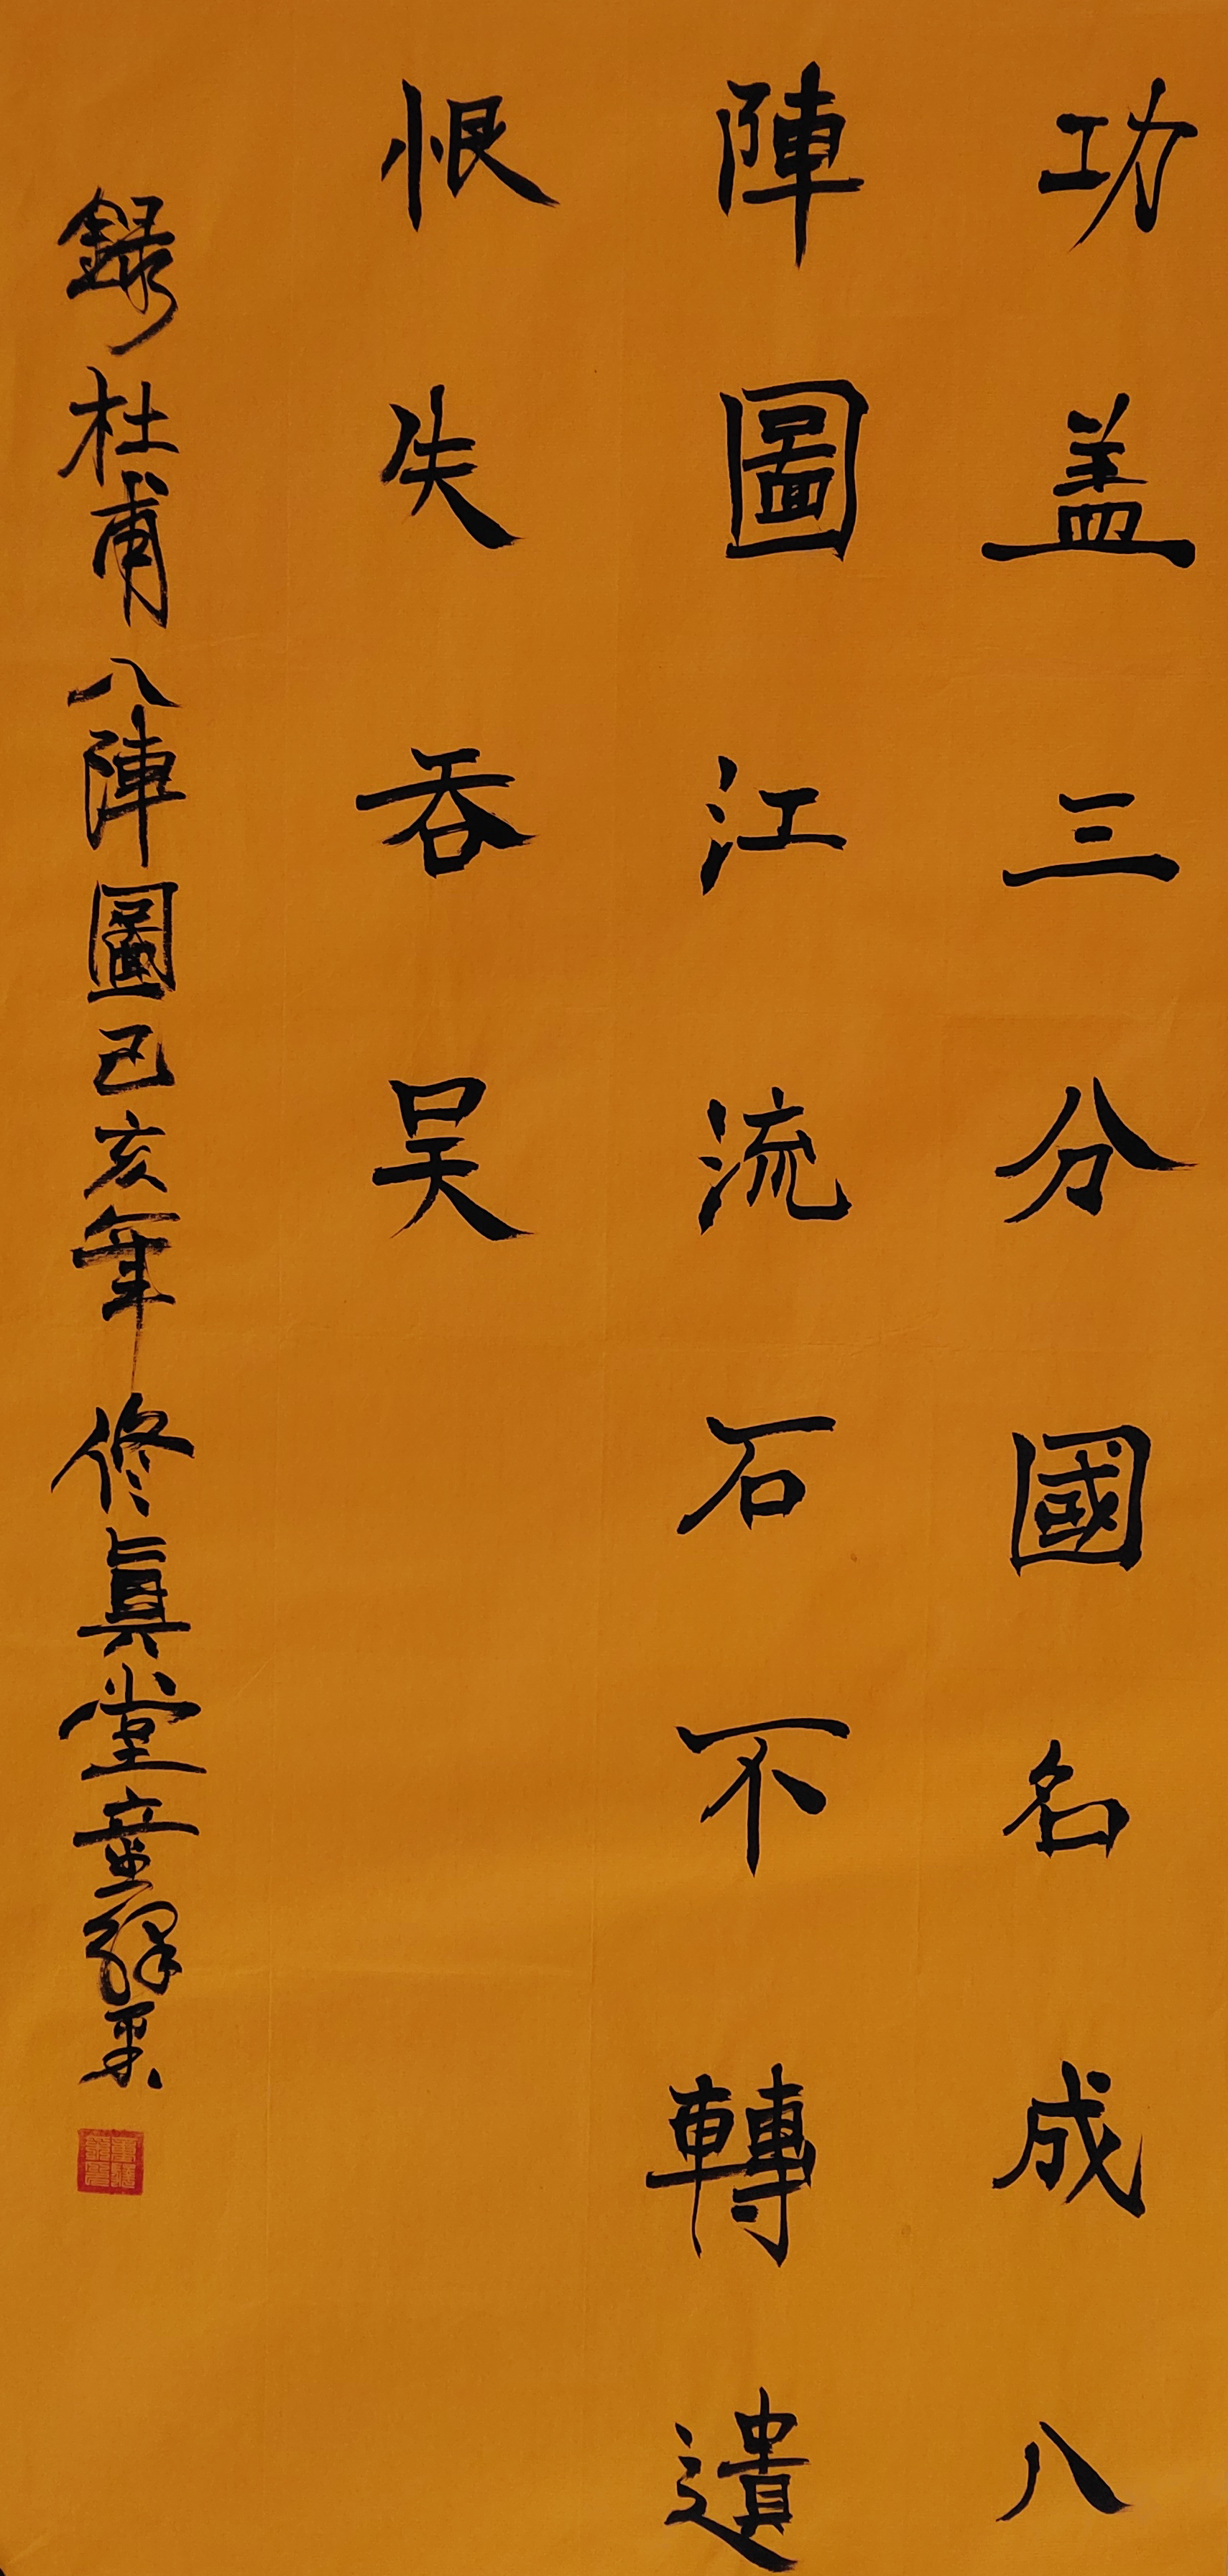 功盖三分國名成八
陣圖江流石不轉遺
恨失吞吴
録杜甫八陣圖己亥年修真堂童